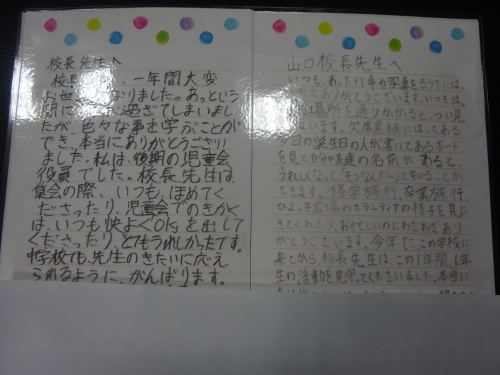 校長先生へ
校長 、一年間大変
お世 なりました。あっという
間に 過ぎてしまいまし
たが、色々な事を学ぶことが
でき、本当にありがとうござい
ました。私は、後期の児童会
役員でした。校長先生は
集会の際、いつも、ほめてく
ださったり、児童会でのきかく
は、いつも快よくOKを出して
くださったり、とてもうれしかったです。
中学校でも、先生のきたいに応え
られるように、がんばります。
山口校長先生へ
いつも、あった行事の写真をろう下には
ありがとうございます。いつも、
場所を通りかかると、つい見
います。欠席黒板にはってある
今日の誕生日の人が書いてあるボード
を見て自分や友達の名前があると、
うれしくなって「そうなんだ〜」と知ることが
できます。修学旅行、卒業旅行、
ひよし子広 のボランティアの様子を見に
きてくれたり、お忙しいのにわざわざあり
がとうございます。今年にこの学校に
来てから、校長先生は、この1年間、6年
生の活動を見守ってくださいました。本当に